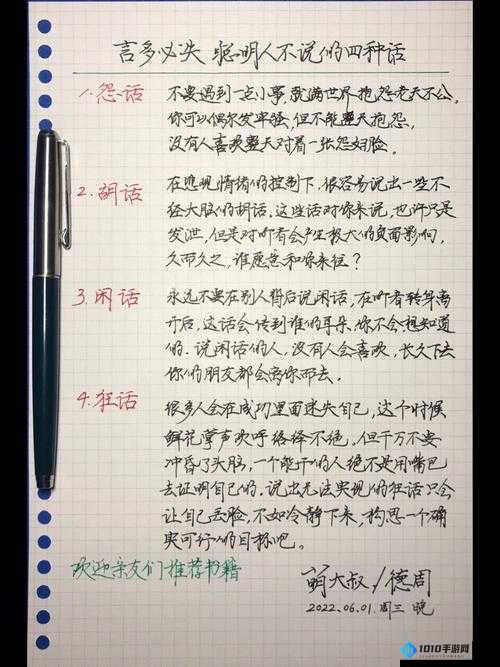 言多必失 聪明人不说的四种话
1.怨话
不要遇到一点小事,就满世界抱怨老天不公,
你可以偶尔发牢骚,但不能整天抱怨,
没有人喜欢整天对着一张怨妇脸。
2.胡话
在悲观情绪的控制下,很容易说出一些不
经大脑的胡话,这些话对你来说,也许只是
发泄,但是对听者会产生极大的负面影响,
久而久之,谁愿意和你来往?
3.闲话
永远不要在别人背后说闲话,在听者转身离
开后,这话会传到谁的耳朵,你不会想知道
的.说闲话的人,没有人会喜欢,长久下去
你的朋友都会离你而去.
4.狂话
很多人会在成功里面迷失自己,这个时候
鲜花掌声欢呼络绎不绝.但千万不要
冲昏了头脑,一个能干的人绝不是用嘴巴
去证明自己的.说出无法实现的狂话只会
让自己丢脸,不如冷静下来,构思一个确
实可行的目标吧.
欢迎亲友们推荐书籍
萌大叔/德周
2022.06.01.周三 晚
1010手游网